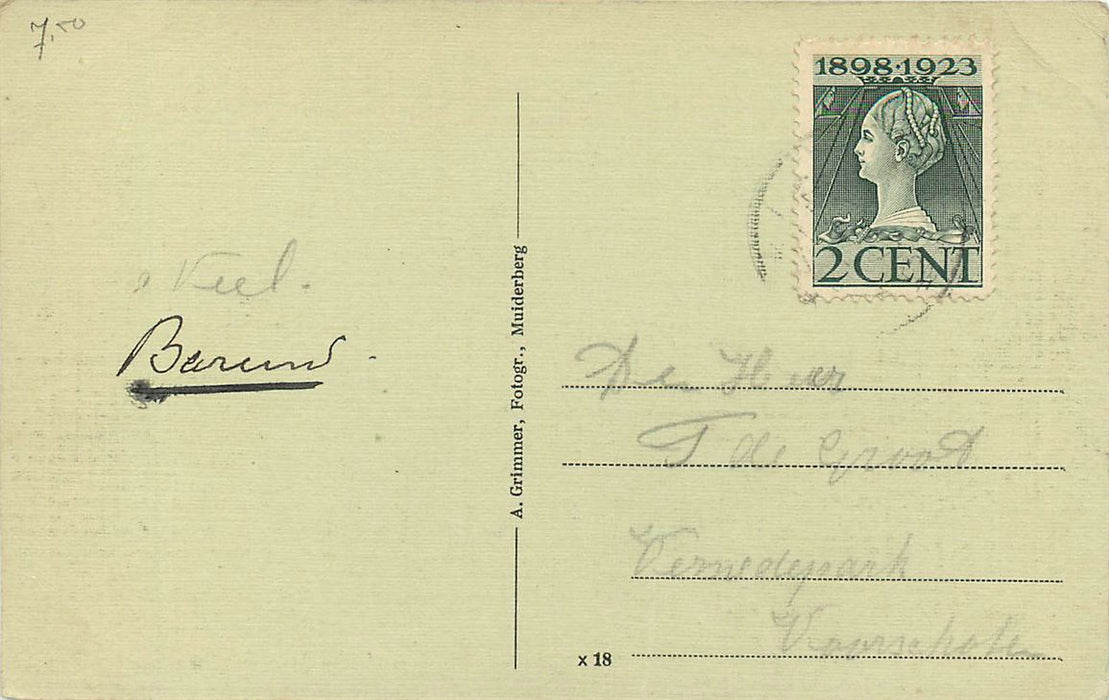 7,50
1898·1923
2 CENT
Veel.
A. Grimmer, Fotogr., Muiderberg
Den Heer
T de Groot
Vernedepark
Voorschoten
x 18